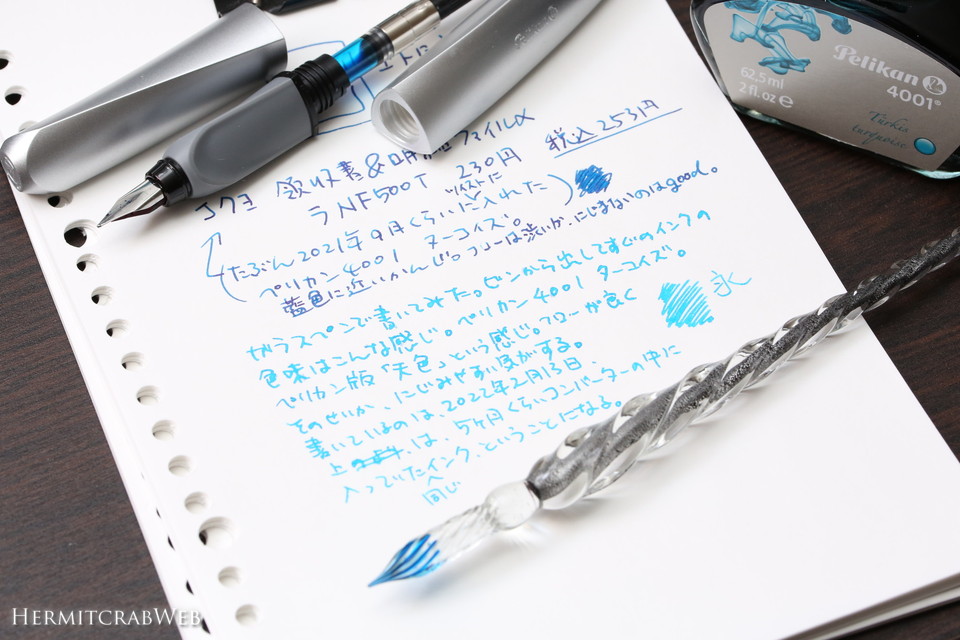 Pelikan
Pelikan
4001®
62,5 ml
2 fl. oz e
Türkis
turquoise
エトに
コクヨ 領収書&明細ファイルα
ラNF500T 230円 税込253円
ツイストに
(たぶん2021年9月くらいに入れた)
ペリカン4001 ターコイズ。
藍色に近いかんじ。フローは渋いが、にじまないのはgood。
ガラスペンで書いてみた。ビンから出してすぐのインクの
色味はこんな感じ。ペリカン4001 ターコイズ。
ペリカン版「天色」という感じ。フローが良く
そのせいか、にじみやすい気がする。
永
書いているのは、2022年2月13日、
上は、5ヶ月くらいコンバーターの中に
入っていたインク、ということになる。
同じ
HERMITCRABWEB